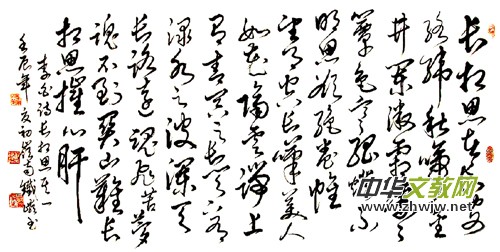 长相思在长安
络纬秋啼金
井阑微霜凄凄
簟色寒孤灯不
明思欲绝卷帷
望月空长叹美人
如花隔云端上
有青冥之长天下有
渌水之波澜天
长路远魂飞苦梦
魂不到关山难长
相思摧心肝
李白诗长相思其一
壬辰年夏初
中华文教网
www.zhwjw.net